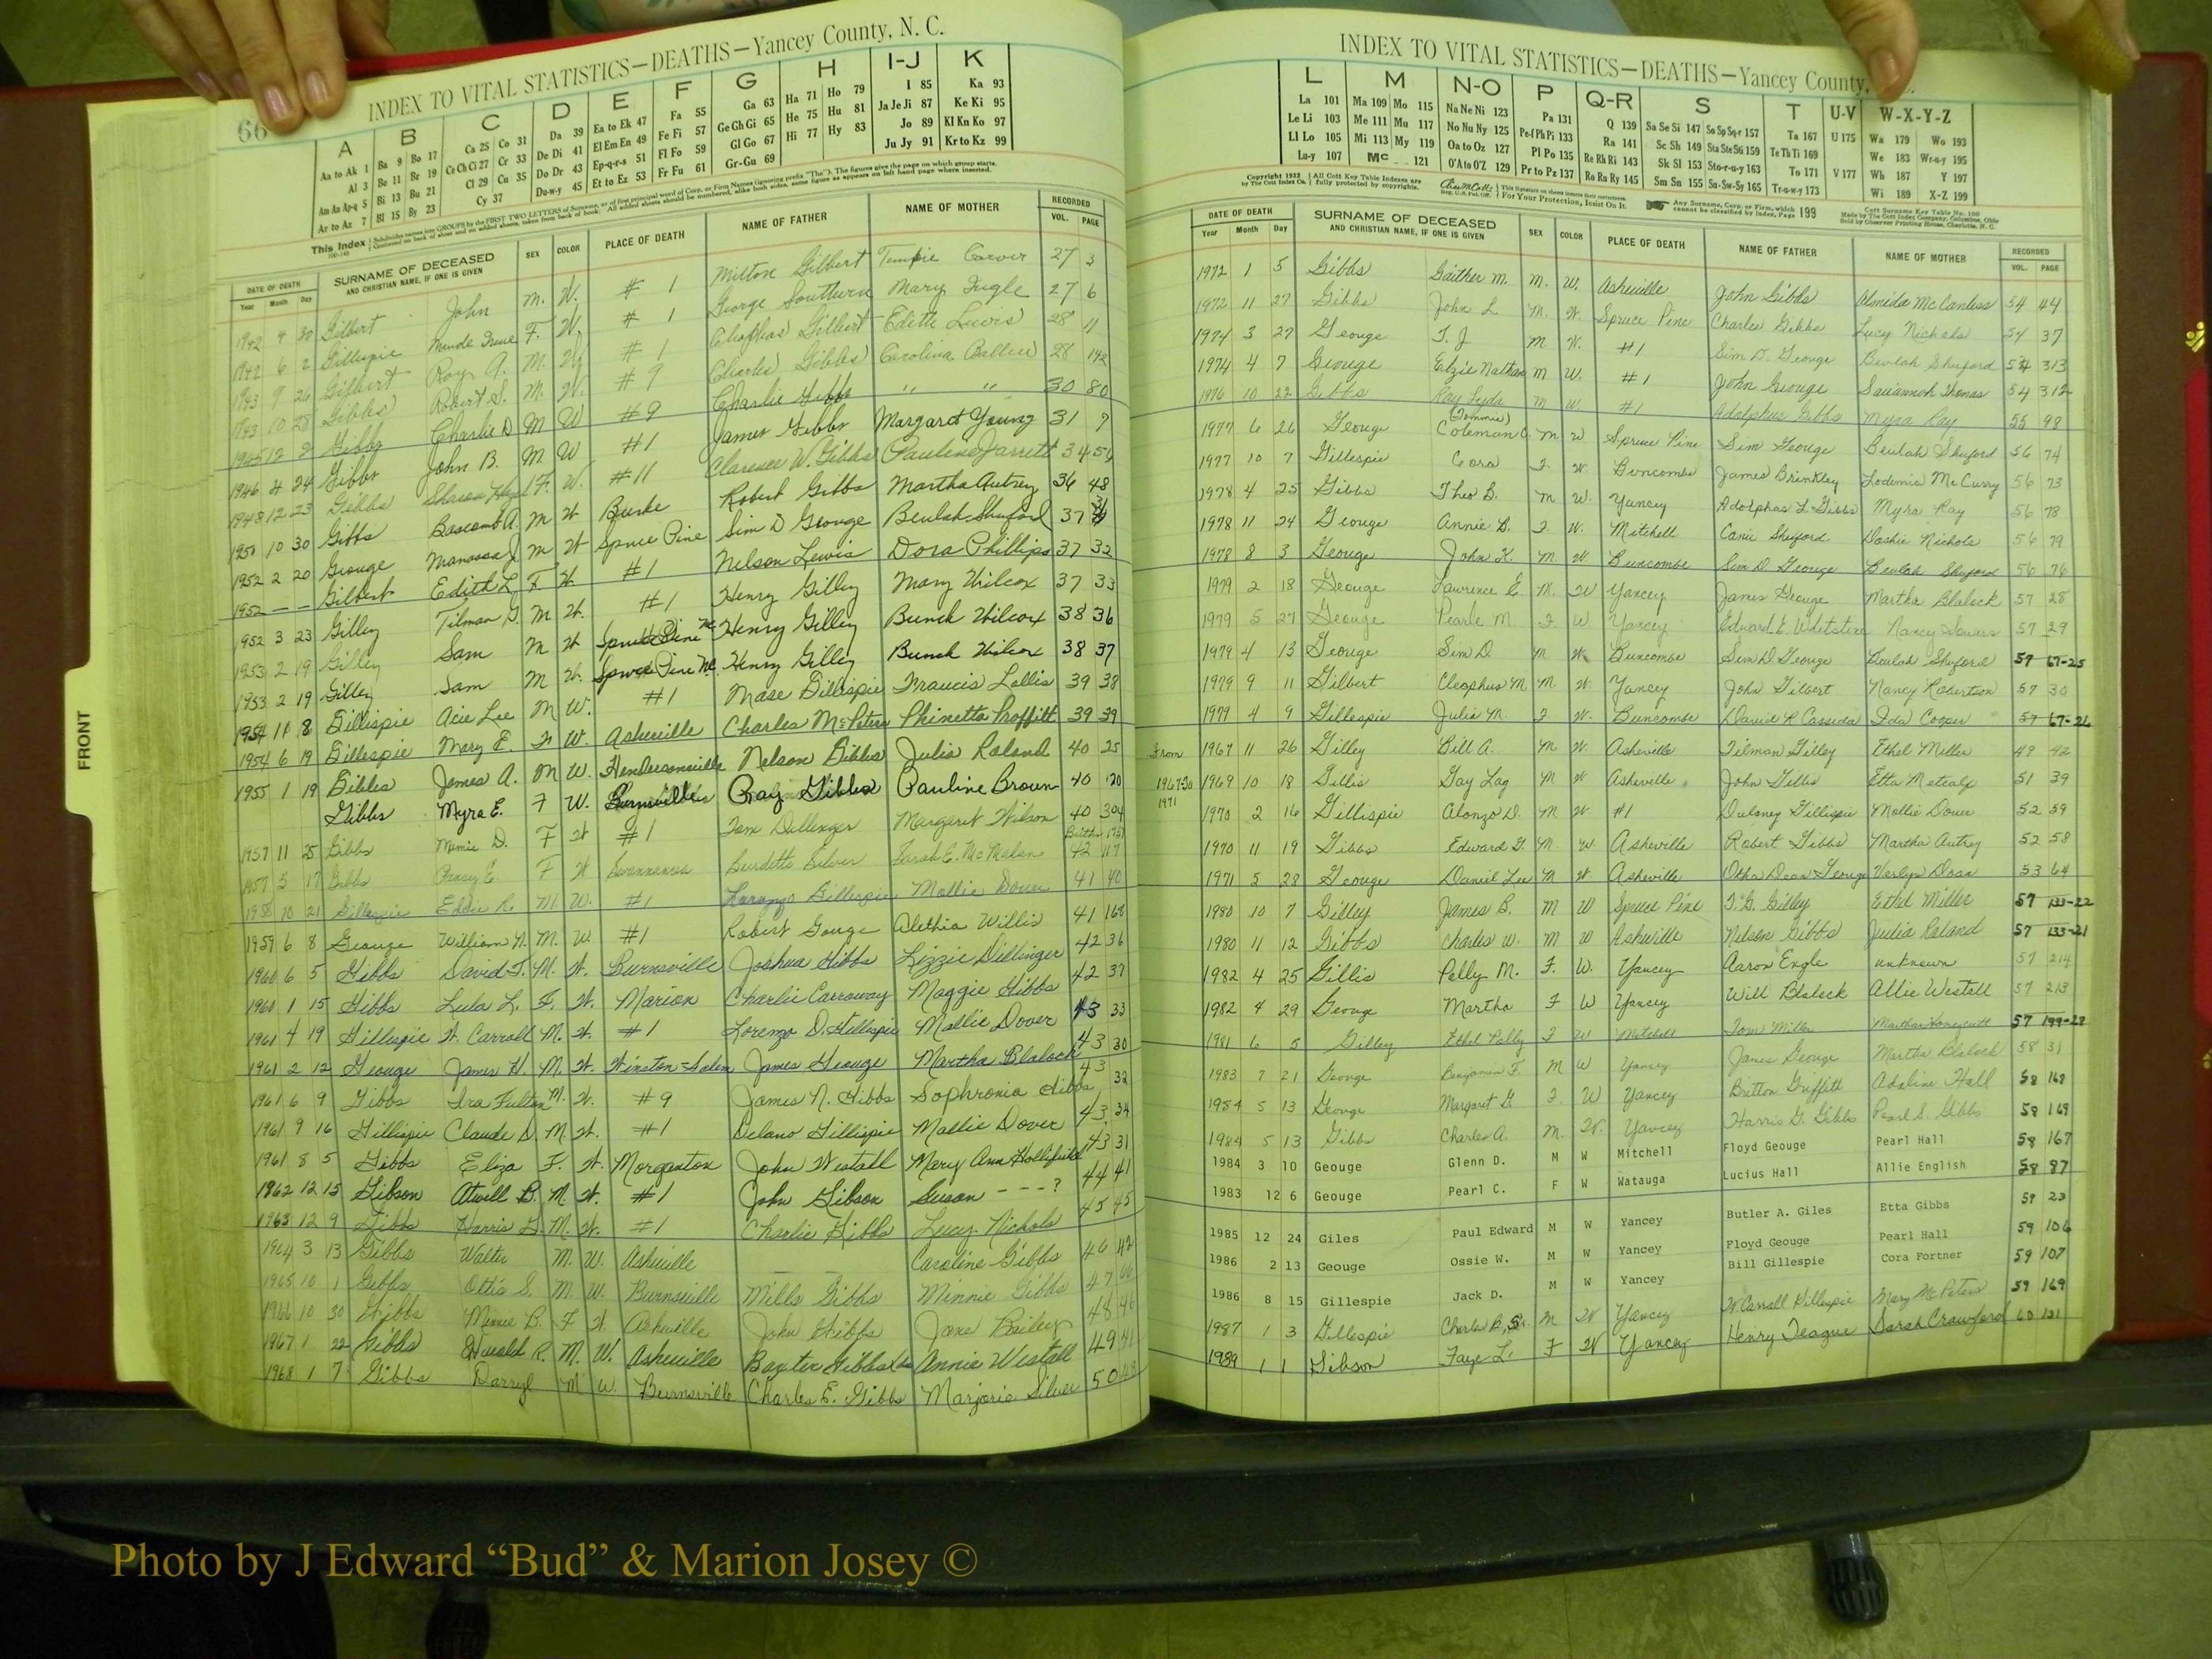 66
INDEX TO VITAL STATISTICS—DEATHS—Yancey County, N. C.
A B C D E F G H I-J K
Aa to Ak 1 Ba 9 Bo 17 Ca 25 Co 31 Da 39 Ea to Ek 47 Fa 55 Ga 63 Ha 71 Ho 79 I 85 Ka 93
Al 3 Be 11 Br 19 Ce Ch Ci 27 Cr 33 De Di 41 El Em En 49 Fe Fi 57 Ge Gh Gi 65 He 75 Hu 81 Ja Je Ji 87 Ke Ki 95
Am An Ap-q 5 Bi 13 Bu 21 Cl 29 Cu 35 Do Dr 43 Ep-q-r-s 51 Fl Fo 59 Gl Go 67 Hi 77 Hy 83 Jo 89 Kl Kn Ko 97
Ar to Az 7 Bl 15 By 23 Cy 37 Du-w-y 45 Et to Ez 53 Fr Fu 61 Gr-Gu 69 Ju Jy 91 Kr to Kz 99
DATE OF DEATH SURNAME OF DECEASED SEX COLOR PLACE OF DEATH NAME OF FATHER NAME OF MOTHER RECORDED
Year Month Day AND CHRISTIAN NAME, IF ONE IS GIVEN VOL. PAGE
1942 9 30 Gilbert John M. W. # 1 Milton Gilbert Tempie Carver 27 3
1942 6 2 Gillispie Maude Irene F. W. # 1 George Southern Mary Tugle 27 6
1943 9 26 Gilbert Roy A. M. W. # 1 Cleophas Gilbert Edith Lewis 28 11
1943 10 28 Gibbs Robert S. M. W. # 9 Charles Gibbs Carolina Ballew 28 142
1945 12 2 Gibbs Charlie D M W #9 Charlie Gibbs " " 30 80
1946 4 24 Gibbs John B. M. W #1 James Gibbs Margaret Young 31 7
1948 12 23 Gibbs Sharon F. W. #11 Clarence W. Gibbs Pauline Jarrett 34 54
1950 10 30 Gibbs Bascomb A. M W Burke Robert Gibbs Martha Autrey 36 48
1952 2 20 Geouge Manassa J. M W Spruce Pine Sim D Geouge Beulah Shuford 37 31
1952 – – Gilbert Edith L F W. #1 Nelson Lewis Dora Phillips 37 32
1952 3 23 Gilley Tilman G. M W. #1 Henry Gilley Mary Wilcox 37 33
1953 2 19 Gilley Sam M W Spruce Pine NC Henry Gilley Bunch Wilcox 38 36
1953 2 19 Gilley Sam M W. Spruce Pine NC Henry Gilley Bunch Wilcox 38 37
1954 11 8 Gillispie Acie Lee M W. #1 Mase Gillispie Francis Lollis 39 38
1954 6 19 Gillespie Mary E. F W. Asheville Charles McPeters Phinetta Proffitt 39 39
1955 1 19 Gibbs James A. M W. Hendersonville Nelson Gibbs Julia Roland 40 25
Gibbs Myra E. F W. Burnsville Ray Gibbs Pauline Brown 40 20
1957 11 25 Gibbs Mamie D. F W #1 Tom Dellinger Margaret Wilson 40 304
1957 5 17 Gibbs Pansy E. F W Swannanoa Burdette Silver Sarah E. McMahan 42 117
1958 10 21 Gillespie Eddie R. M W. #1 Lorenzo Gillespie Mollie Dover 41 40
1959 6 8 Geouge William N. M. W. #1 Robert Gouge Alethia Willis 41 168
1960 6 5 Gibbs David F. M. W. Burnsville Joshua Gibbs Lizzie Dillinger 42 36
1960 1 15 Gibbs Lula L. F. W. Marion Charlie Carroway Maggie Gibbs 42 37
1961 4 19 Gillespie W. Carroll M. W. #1 Lorenzo D. Gillespie Mallie Dover 43 33
1961 2 12 Geouge James H. M. W. Winston=Salem James Geouge Martha Blalock 43 30
1961 6 9 Gibbs Ira Fulton M. W. #9 James N. Gibbs Sophronia Gibbs 43 32
1961 9 16 Gillispie Claude D. M. W. #1 Delano Gillispie Mallie Dover 43 34
1961 8 5 Gibbs Eliza F. W. Morganton John Westall Mary Ann Hollifield 43 31
1962 12 15 Gibson Atwell B. M. W. #1 John Gibson Susan – – – ? 44 41
1963 12 9 Gibbs Harris G. M. W. #1 Charlie Gibbs Lucy Nichols 45 45
1964 3 13 Gibbs Walter M. W. Asheville Caroline Gibbs 46 42
1965 10 1 Gibbs Ottis S. M. W. Burnsville Mills Gibbs Minnie Gibbs 47
1966 10 30 Gibbs Minnie B. F W Asheville John Gibbs Jane Bailey 48 46
1967 1 22 Gibbs Harold R. M. W. Asheville Baxter Gibbs Annie Westall 49 41
1968 1 7 Gibbs Darryl M W. Burnsville Charles E. Gibbs Marjorie Silver 50
FRONT
INDEX TO VITAL STATISTICS—DEATHS—Yancey County,
L M N-O P Q-R S T U-V W-X-Y-Z
La 101 Ma 109 Mo 115 Na Ne Ni 123 Pa 131 Q 139 Sa Se Si 147 So Sp Sq-r 157 Ta 167 U 175 Wa 179 Wo 193
Le Li 103 Me 111 Mu 117 No Nu Ny 125 Pe-f Ph Pi 133 Ra 141 Sc Sh 149 Sta Ste Sti 159 Te Th Ti 169 We 183 Wr-u-y 195
Ll Lo 105 Mi 113 My 119 Oa to Oz 127 Pl Po 135 Re Rh Ri 143 Sk Sl 153 Sto-r-u-y 163 To 171 V 177 Wh 187 Y 197
Lu-y 107 Mc 121 O'A to O'Z 129 Pr to Pz 137 Ro Ru Ry 145 Sm Sn 155 Su-Sw-Sy 165 Tr-u-w-y 173 Wi 189 X-Z 199
DATE OF DEATH SURNAME OF DECEASED SEX COLOR PLACE OF DEATH NAME OF FATHER NAME OF MOTHER RECORDED
Year Month Day AND CHRISTIAN NAME, IF ONE IS GIVEN VOL. PAGE
1972 1 5 Gibbs Gaither M. M. W. Asheville John Gibbs Almida McCanless 54 44
1972 11 27 Gibbs John L M. W. Spruce Pine Charles Gibbs Lucy Nichols 54 37
1974 3 27 Geouge T. J M W. #1 Sim D. Geouge Beulah Shuford 54 313
1974 4 7 Geouge Elzie Nathan M W. #1 John Geouge Savannah Thomas 54 312
1976 10 22 Gibbs Ray Lyda M W. #1 Adolphus Gibbs Myra Ray 55 98
1977 6 26 Geouge (Tommie) Coleman C. M W Spruce Pine Sim Geouge Beulah Shuford 56 74
1977 10 7 Gillespie Cora F W Buncombe James Brinkley Lodemia McCurry 56 73
1978 4 25 Gibbs Theo B. M W. Yancey Adolphas L. Gibbs Myra Ray 56 78
1978 11 24 Geouge Annie B. F W. Mitchell Canie Shuford Dashie Nichols 56 79
1978 8 3 Geouge John K. M W. Buncombe Sim D George Beulah Shuford 56 76
1979 2 18 Geouge Lawrence E. M. W Yancey James Geouge Martha Blalock 57 28
1979 5 27 Geouge Pearle M. F W Yancey Edward E. Whetstine Nancy Sowers 57 29
1979 4 13 George Sim D M W. Buncombe Sim D. George Beulah Shuford 57 67-25
1979 9 11 Gilbert Cleophus M M W. Yancey John Gilbert Nancy Robertson 57 30
1979 4 9 Gillespie Julia M. F W. Buncombe David R Cassida Ida Cooper 57 67-26
From 1967 11 26 Gilley Bill A. M W. Asheville Tilman Gilley Ethel Miller 49 42
1967-70 1969 10 18 Gillis Gay Lag M W Asheville John Gillis Etta Metcalf 51 39
1971 1970 2 16 Gillispie Alonzo D. M W #1 Dulaney Gillispie Mollie Dover 52 59
1970 11 19 Gibbs Edward G. M. W. Asheville Robert Gibbs Martha Autrey 52 58
1971 5 28 Geouge Daniel Lee M W Asheville Otha Dean Geouge Verlyn Doan 53 64
1980 10 7 Gilley James B. M W Spruce Pine T. G. Gilley Ethel Miller 57 133-22
1980 11 12 Gibbs Charles W. M W Asheville Nelson Gibbs Julia Roland 57 133-21
1982 4 25 Gillis Pelly M. F. W. Yancey Aaron Engle unknown 57 214
1982 4 29 Geouge Martha F W Yancey Will Blalock Allie Westall 57 213
1981 6 5 Gilley Ethel Polly F W Mitchell Tom Miller Martha Honeycutt 57 199-28
1983 7 21 Geouge Benjamin F. M W Yancey James Geouge Martha Blalock 58 31
1984 5 13 Geouge Margaret G. F W Yancey Britton Griffith Adaline Hall 58 168
1984 5 13 Gibbs Charles A. M. W. Yancey Harris G. Gibbs Pearl S. Gibbs 58 169
1984 3 10 Geouge Glenn D. M W Mitchell Floyd Geouge Pearl Hall 58 167
1983 12 6 Geouge Pearl C. F W Watauga Lucius Hall Allie English 58 87
1985 12 24 Giles Paul Edward M W Yancey Butler A. Giles Etta Gibbs 59 23
1986 2 13 Geouge Ossie W. M W Yancey Floyd Geouge Pearl Hall 59 106
1986 8 15 Gillespie Jack D. M W Yancey Bill Gillespie Cora Fortner 59 107
1987 1 3 Gillespie Charles B, Sr. M W Yancey W. Carroll Gillespie Mary McPeters 59 169
1989 1 1 Gibson Faye L. F W Yancey Henry Teague Sarah Crawford 60 121
Photo by J Edward “Bud” & Marion Josey ©